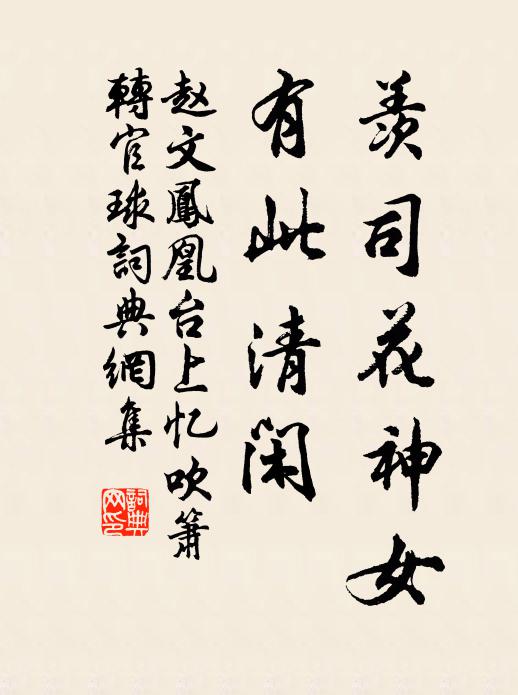 羡司花神女
有此清闲
赵文鳳凰台上忆吹箫
轉官球詞典網集
詞典网印